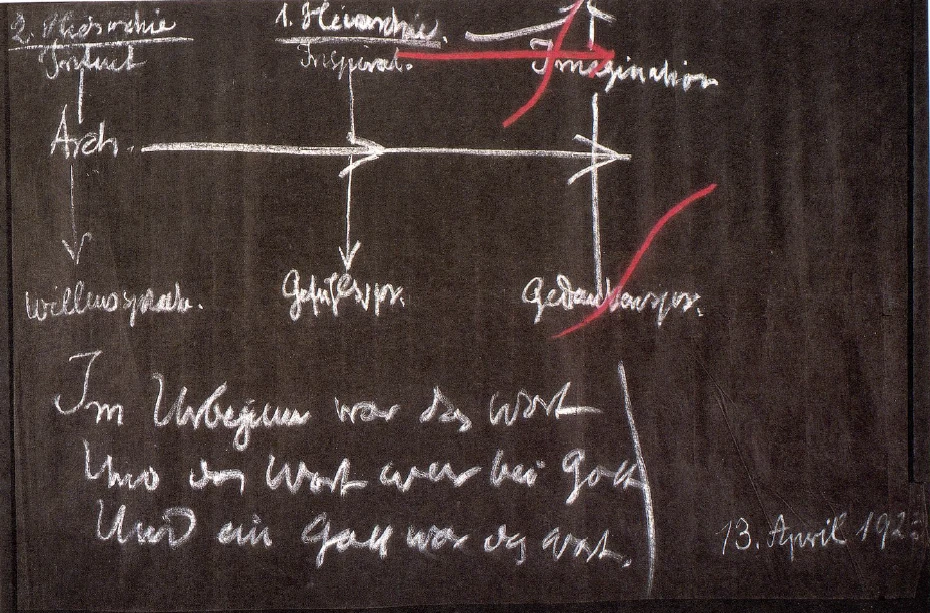 2. Hierarchie 1. Hierarchie.
Intuit Inspirat. Imagination
Arch.
Willenssprach. Gefühlsspr. Gedankenspr.
Im Urbeginn war das Wort
Und das Wort war bei Gott
Und ein Gott war das Wort.
13. April 1923